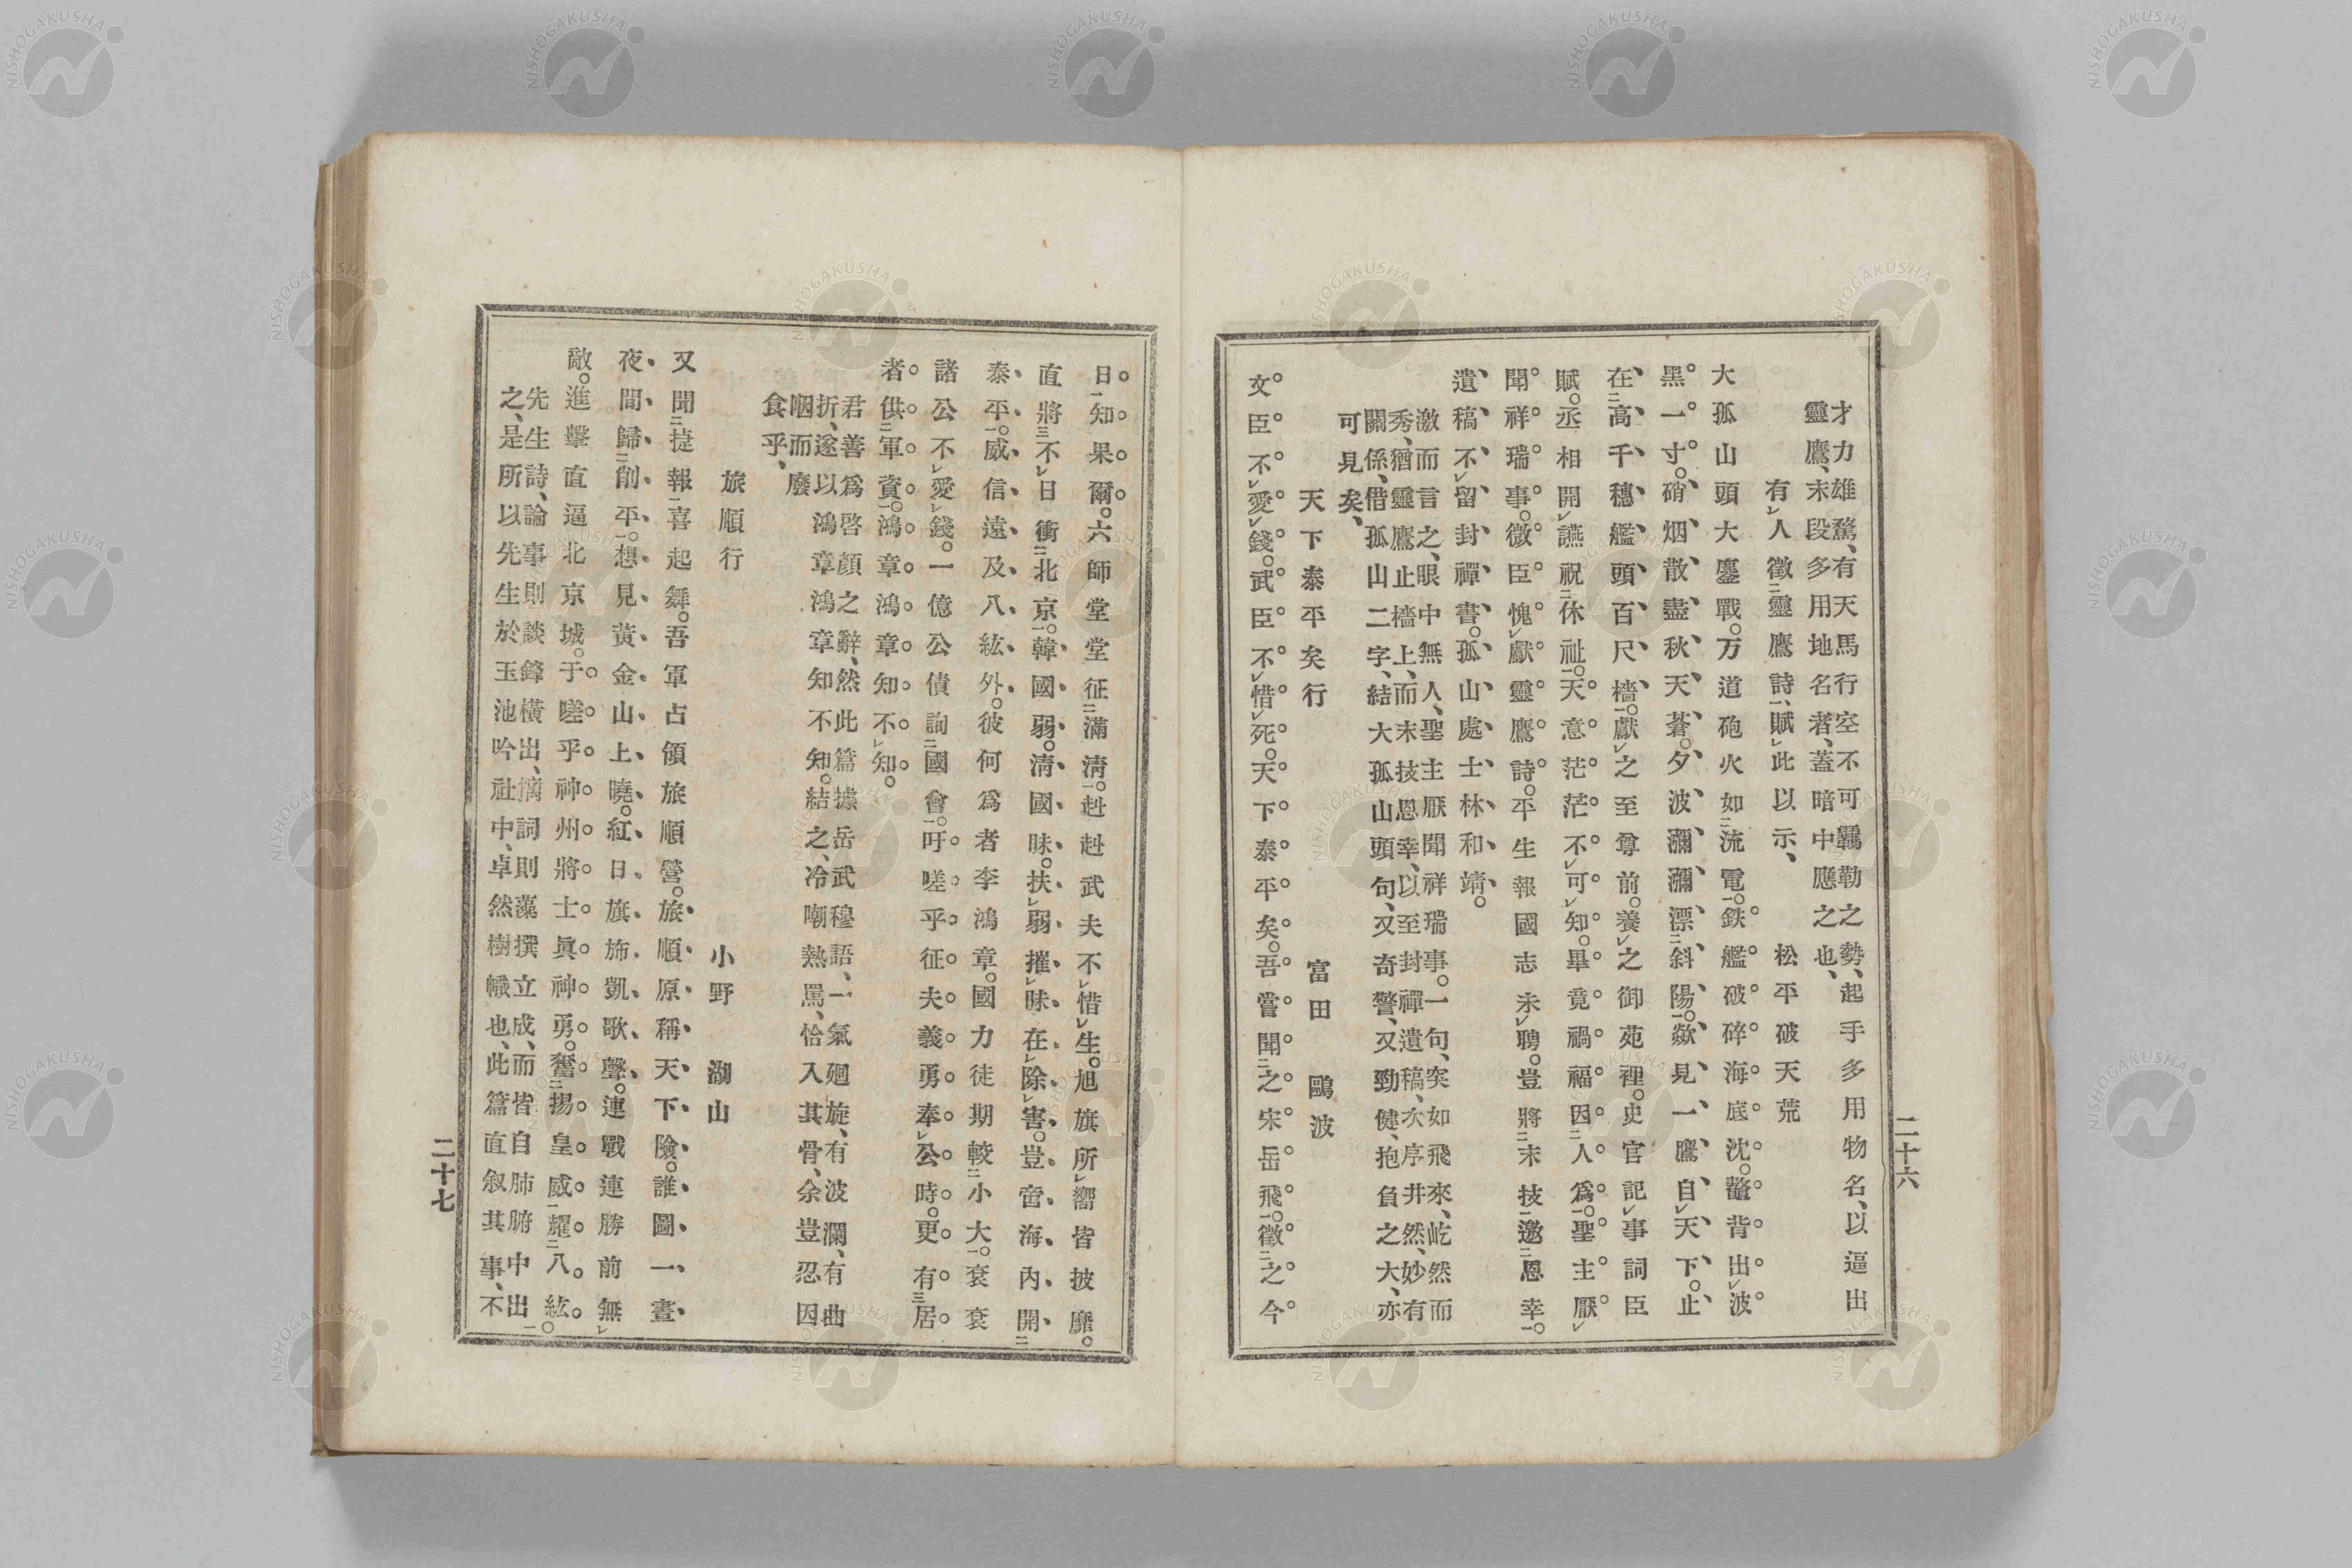 才力雄騖、有天馬行空不可羈勒之勢、起手多用物名、以逼出
靈鷹、末段多用地名者、蓋暗中應之也、
有レ人徵二靈鷹詩一、賦レ此以示、　松平破天荒
大孤山頭大鏖戰。万道砲火如二流電一。鉄艦破碎海底沈。鼇背出レ波
黑一寸。硝烟散盡秋天蒼。夕波瀰瀰漂二斜陽一。歘見一鷹自レ天下。止
在二高千穗艦頭百尺檣一。獻レ之至尊前。養レ之御苑裡。史官記レ事詞臣
賦。丞相開レ讌祝二休祉一。天意茫茫不レ可レ知。畢竟禍福因二人爲一。聖主厭レ
聞祥瑞事。微臣愧レ獻靈鷹詩。平生報國志未レ聘。豈將二末技一邀二恩幸一。
遺稿不レ留封禪書。孤山處士林和靖。
激而言之、眼中無人、聖主厭聞祥瑞事。一句、突如飛來、屹然而
秀、猶靈鷹止檣上、而末技恩幸、以至封禪遺稿、次序井然、妙有
關係、借孤山二字、結大孤山頭句、又奇警、又勁健、抱負之大、亦
可見矣、
天下泰平矣行　富田鷗波
文臣不レ愛レ錢。武臣不レ惜レ死。天下泰平矣。吾嘗聞二之宋岳飛一。徵二之今
二十六
日一知果爾。六師堂堂征二滿淸一。赳赳武夫不レ惜レ生。旭旗所レ嚮皆披靡。
直將三不レ日衝二北京一。韓國弱。淸國昧。扶レ弱摧レ昧在レ除レ害。豈啻海內開二
泰平一。威信遠及八紘外。彼何爲者李鴻章。國力徒期較二小大一。袞袞
諸公不レ愛レ錢。一億公債詢二國會一。吁嗟乎征夫義勇奉レ公時。更有三居
者供二軍資一。鴻章鴻章知不レ知。
君善爲啓顏之辭、然此篇據岳武穆語、一氣廻旋、有波瀾、有曲
折、遂以鴻章鴻章知不知。結之、冷嘲熱罵、恰入其骨、余豈忍因
咽而廢
食乎、
旅順行　小野湖山
又聞二捷報一喜起舞。吾軍占領旅順營。旅順原稱天下險。誰圖一晝
夜間歸二削平一。想見黃金山上曉。紅日旗旆凱歌聲。連戰連勝前無レ
敵。進擊直逼北京城。于嗟乎神州將士眞神勇。奮二揚皇威一耀二八紘一。
先生詩、論事則談鋒橫出、摛詞則藻撰立成、而皆自肺腑中出
之、是所以先生於玉池吟社中、卓然樹幟也、此篇直叙其事、不
二十七